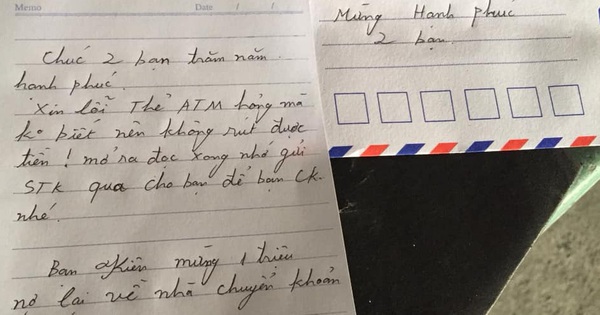 Memo Date / /
Chúc 2 bạn trăm năm
hạnh phúc.
Xin lỗi Thẻ ATM hỏng mà
ko biết nên không rút được
tiền ! mở ra đọc xong nhớ gửi
STK qua cho bạn để bạn CK
nhé.
Bạn Kiên mừng 1 triệu
nợ lại về nhà chuyển khoản
Mừng Hạnh phúc
2 bạn.